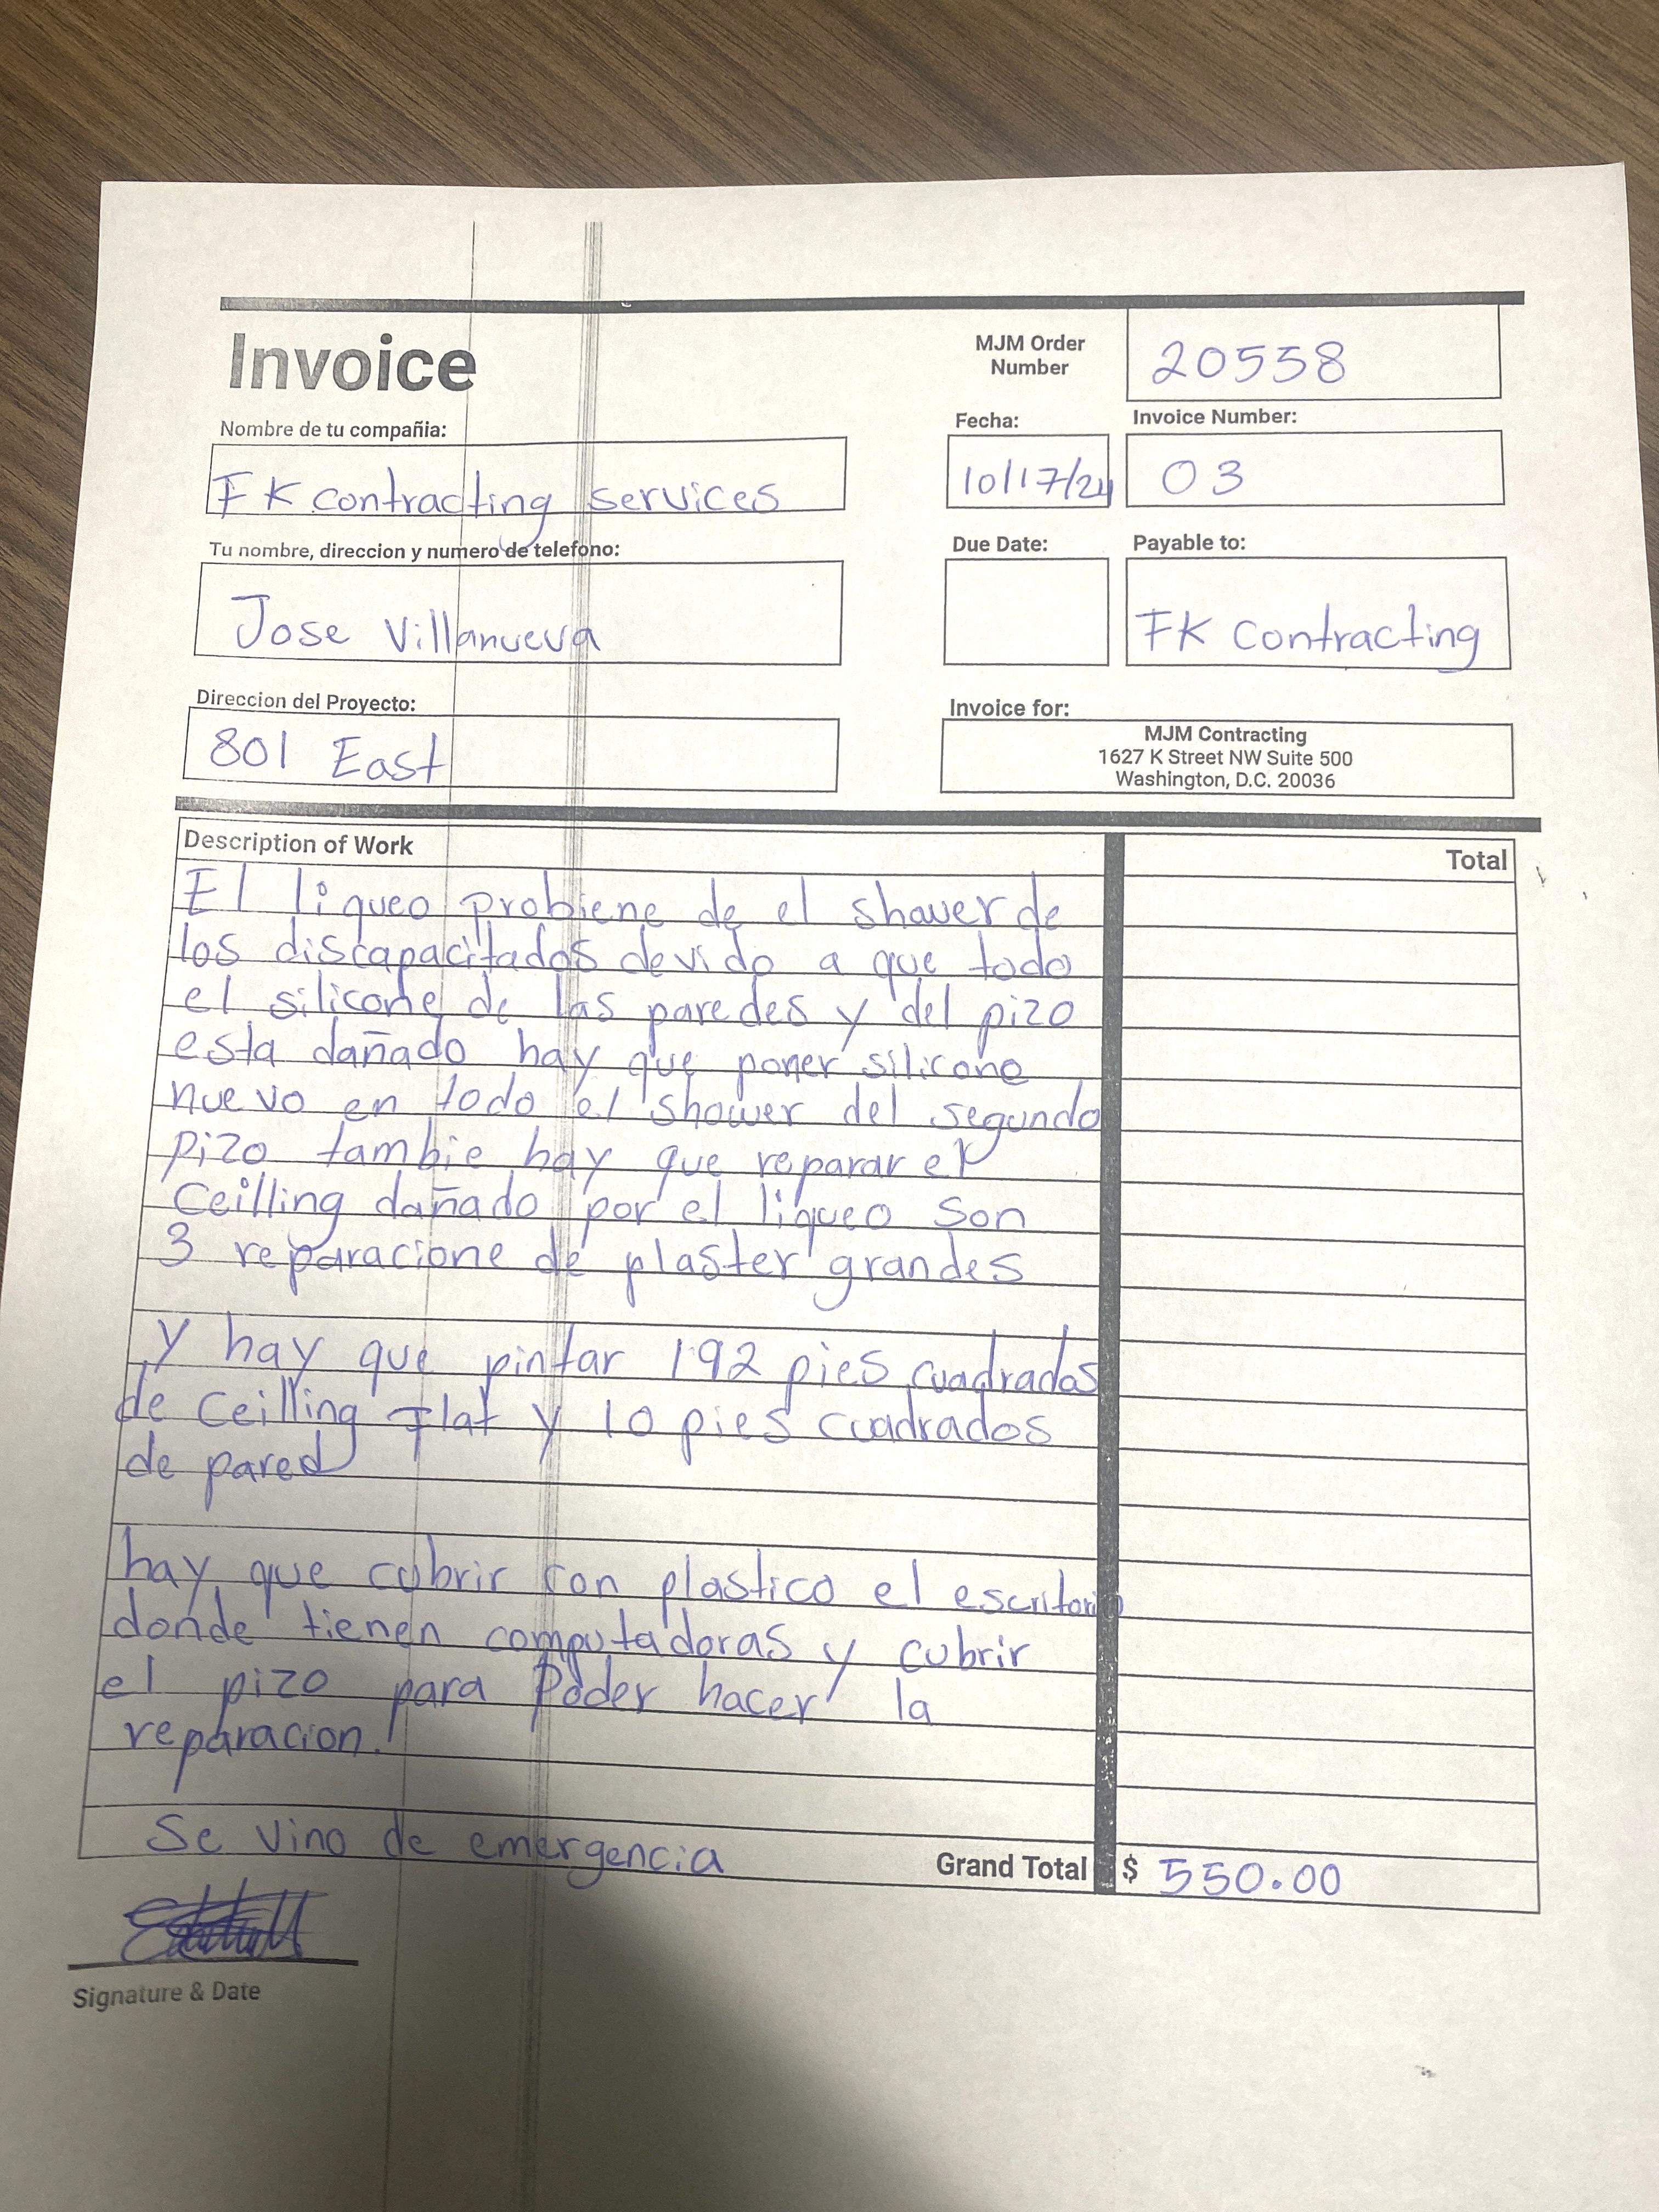 Invoice
MJM Order
Number
20558
Nombre de tu compañia:
FK contracting services
Fecha:
10/17/24
Invoice Number:
03
Tu nombre, direccion y numero de telefono:
Jose Villanueva
Due Date:
Payable to:
FK Contracting
Direccion del Proyecto:
801 East
Invoice for:
MJM Contracting
1627 K Street NW Suite 500
Washington, D.C. 20036
Description of Work
Total
El liqueo probiene de el shawer de
los discapacitados devido a que todo
el silicone de las paredes y del pizo
esta dañado hay que poner silicone
nuevo en todo el shower del segundo
pizo tambie hay que reparar el
Ceilling dañado por el liqueo son
3 reparacione de plaster grandes
y hay que pintar 192 pies cuadrados
de Ceilling flat y 10 pies cuadrados
de pared
hay que cubrir con plastico el escritorio
donde tienen computadoras y cubrir
el pizo para Poder hacer la
reparacion.
Se vino de emergencia
Grand Total
$ 550.00
Signature & Date